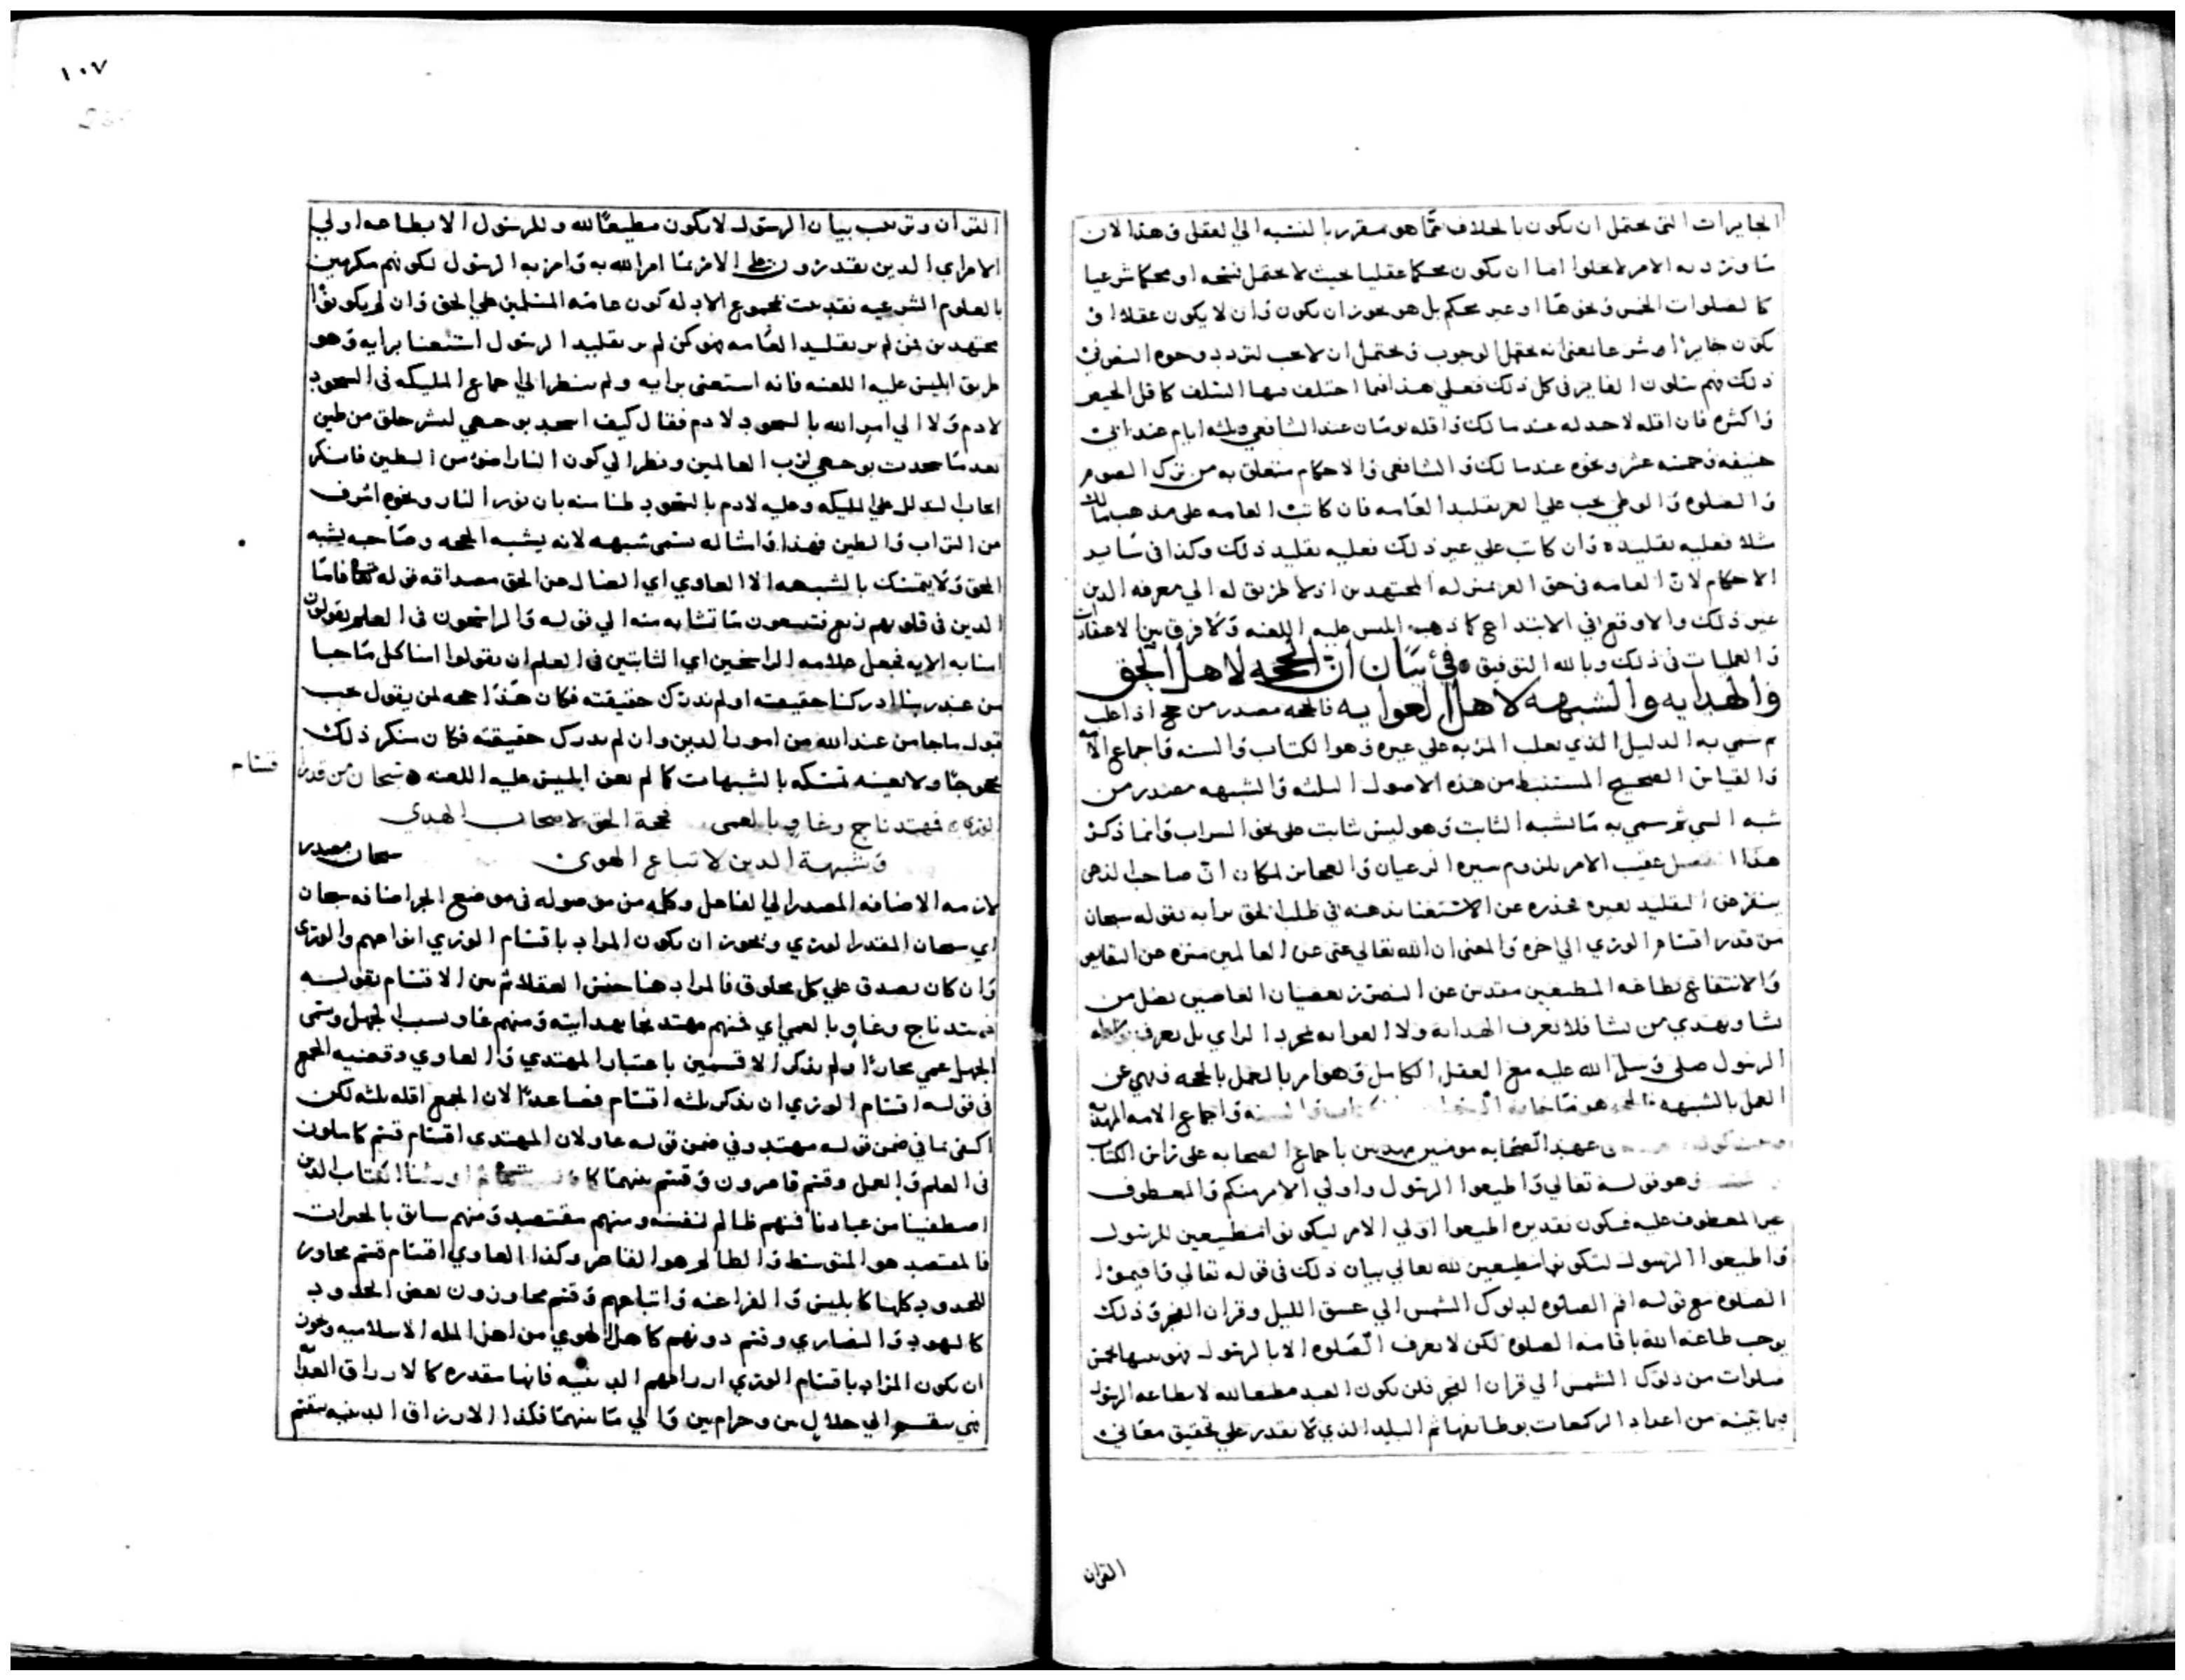 الجايزات التى يحتمل ان يكون بالخلاف عما هو مقرر بالنسبه الي العقل وهذا لان
ما ورد به الامر لا يخلوا اما ان يكون محكما عقليا بحيث لا يحتمل نسخه او محكما شرعيا
كالصلوات الخمس ونحوها او غير محكم بل هو يجوز ان يكون وان لا يكون عقلا او
يكون جايزا شرعا بمعنى انه يحتمل الوجوب ويحتمل ان لا يجب لتردد وجوه
ذلك فهم فى كل ذلك فعلى هذا فيما اختلف فيها السلف كاقل الحيض
واكثره فان اقله لا حد له عند مالك واقله يومان عند الشافعي وثلثه ايام عند ابى
حنيفه وخمسه عشر ونحوه عند مالك والشافعى والاحكام متعلق به من ترك الصوم
والصلوه والوطي يجب علي الغر تقليد العامه فان كانت العامه على مذهب مالك
مثلا فعليه تقليده وان كانت علي غير ذلك فعليه تقليد ذلك وكذا فى ساير
الاحكام لان العامه فى حق الغر بمنزله المجتهدين اذ لا طريق له الي معرفه الدين
غير ذلك والا وقع في الابتداع كما ذهب ابليس عليه اللعنه ولا فرق بين الاعتقادات
والعمليات فى ذلك وبالله التوفيق في بيان ان الحجه لاهل الحق
والهدايه والشبهه لاهل الغوايه فالحجه مصدر من حج اذا غلب
ثم سمي به الدليل الذي يغلب المرء به علي غيره وهو الكتاب والسنه واجماع الامه
والقياس الصحيح المستنبط من هذه الاصول الثلثه والشبهه مصدر من
شبه الشي ثم سمي به ما اشبه الثابت وهو ليس ثابت على نحو السراب وانما ذكر
هذا الفصل عقيب الامر بلزوم سيره الرعيان والعجايز لمكان ان صاحب الذهن
يستقر ض التقليد لغيره بحذره عن الاستغنا بذهنه في طلب الحق برايه بقوله سبحان
من قدر اقسام الوري الي اخره والمعنى ان الله تعالي غنى عن العالمين منزه عن النقايص
والانتفاع بطاعه المطيعين مقدس عن التضرر بعصيان العاصين يضل من
يشا ويهدي من يشا فلا يعرف الهدايه ولا الغوايه بمجرد الراي بل يعرف بواسطه
الرسول صلى وسلم الله عليه مع العقل الكامل وهو امر بالعمل بالحجه ونهي عن
العمل بالشبهه فالحجه هو ما جا به واجماع الامه المهديه
عهد الصحابه مومنين مهديين باجماع الصحابه على الكتاب
وهو قوله تعالي واطيعوا الرسول واولي الامر منكم والمعطوف
غير المعطوف عليه فيكون تقديره اطيعوا اولي الامر ليكونوا مطيعين للرسول
واطيعوا الرسول لتكونوا مطيعين لله تعالي بيان ذلك فى قوله تعالي واقيموا
الصلوه مع قوله اقم الصلوه لدلوك الشمس الي غسق الليل وقران الفجر وذلك
يوجب طاعه الله باقامه الصلوه لكن لا يعرف الصلوه الا بالرسول فهو بينها بخمس
صلوات من دلوك الشمس الي قران الفجر فلن يكون العبد مطيعا لله لا بطاعه الرسول
فيما بينه من اعداد الركعات بوظايفها ثم البليد الذي لا يقدر على تحقيق معانى
القران
١٠٧
القران وترتيب بيان الرسول لا يكون مطيعا لله وللرسول الا بطاعه اولي
الامر اي الذين يقدرون على الامر بما امر الله به وامر به الرسول لكونهم مكرمين
بالعلوم الشرعيه فقد ثبت بمجموع الادله كون عامه المسلمين على الحق وان لم يكونوا
مجتهدين فمن لم ير تقليد العامه فهو كمن لم ير تقليد الرسول استغنا برايه وهو
طريق ابليس عليه اللعنه فانه استغنى برايه ولم ينظر الي اجماع المليكه فى السجود
لادم ولا الي امر الله بالسجود لادم فقال كيف اسجد بوجهي لبشر خلق من طين
بعد ما سجدت بوجهي لرب العالمين ونظر الي كون النار اضوء من الطين فانكر
ايجاب التذلل علي المليكه وعليه لادم بالسجود ظنا منه بان نور النار ونحوه اشرف
من التراب والطين فهذا وامثاله يسمى شبهه لانه يشبه الحجه وصاحبه يشبه
المحق ولا يتمسك بالشبهه الا الغاوي اي الضال عن الحق مصداقه قوله تعالى فاما
الذين فى قلوبهم زيغ فيتبعون ما تشابه منه الي قوله والراسخون فى العلم يقولون
امنا به الايه فجعل علامه الراسخين اي الثابتين فى العلم ان يقولوا امنا كل ما جا
من عند ربنا ادركنا حقيقته او لم ندرك حقيقته فكان هذا حجه لمن يقول يجب
قبول ما جا من عند الله من امور الدين وان لم يدرك حقيقته فكان منكر ذلك
محجوجا ولا يغنيه تمسكه بالشبهات كما لم يغن ابليس عليه اللعنه سبحان من قدر
قسام
الورى فمهتد ناج وغاو بالعمى فحجة الحق لاصحاب الهدي
وشبهة الدين لاتباع الهوى سبحان مصدر
لازمه الاضافه المصدر الي الفاعل وكلمه من موصوله فى موضع الجر اضافه سبحان
اي سبحان المقدر الوري ويجوز ان يكون المراد باقسام الوري انواعهم والورى
وان كان يصدق علي كل مخلوق فالمراد هنا جنس العقلا ثم بين الاقسام بقوله
فمهتد ناج وغاو بالعمي اي فمنهم مهتد نجا بهدايته ومنهم غاو بسبب الجهل ويسمى
الجهل عمي مجازا ولم يذكر الا قسمين باعتبار المهتدي والغاوي وقضيه الجمع
فى قوله اقسام الوري ان يذكر ثلثه اقسام فصاعدا لان الجمع اقله ثلثه لكن
اكتفى بما في ضمن قوله مهتد وفي ضمن قوله غاو لان المهتدى اقسام قسم كاملون
فى العلم والعمل وقسم قاصرون وقسم بينهما كما اورثنا الكتاب الذين
اصطفينا من عبادنا فمنهم ظالم لنفسه ومنهم مقتصد ومنهم سابق بالخيرات
فالمقتصد هو المتوسط والظالم هو القاصر وكذا الغاوي اقسام قسم مجاوز
للحدود كلها كابليس والفراعنه واتباعهم وقسم مجاوزون بعض الحدود
كاليهود والنصاري وقسم دونهم كاهل الهوي من اهل المله الاسلاميه ويجوز
ان يكون المراد باقسام الوري ارزاقهم الدينيه فانها مقدره كالارزاق
فهي ينقسم الي حلال بين وحرام بين والي ما بينهما فكذا الارزاق الدينيه ينقسم